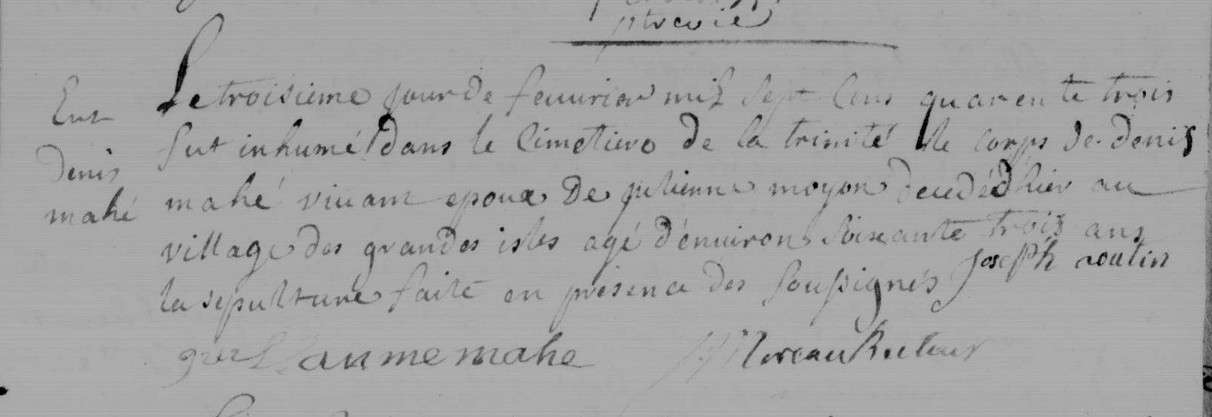 Ent
Denis
mahé
Le troisieme jour de feuurier mil sept cens quarente trois
fut inhumé dans le Cimetiere de la trinité le corps de denis
mahé viuant epoux De julienne moyon decedé d'hier au
village des grandes isles agé d'enuiron soixante trois ans
la sepulture faite en presence des soussignés Joseph aoutin
aume mahe Moreau Recteur